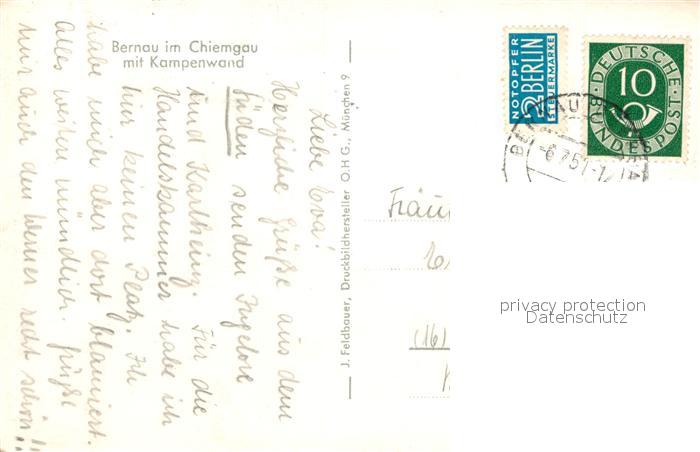 Bernau im Chiemgau
mit Kampenwand
Liebe Eva!
Herzliche Grüße aus dem
Süden senden Ingelore
und Karlheinz. Für die
Handelskammer habe ich
hier keinen Platz. Ich
habe mich aber dort blamiert.
Alles weitere mündlich. Grüße
mir auch den Werner recht schön!!
J. Feldbauer, Druckbildhersteller O.H.G., München 9
NOTOPFER
2 BERLIN
STEUERMARKE
DEUTSCHE
10
BUNDESPOST
-6.7.5
Fräu
(16)
privacy protection
Datenschutz